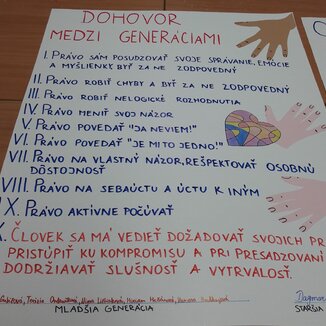 DOHOVOR
MEDZI GENERÁCIAMI
I. PRÁVO SÁM POSUDZOVAŤ SVOJE SPRÁVANIE, EMÓCIE
A MYŠLIENKY BYŤ ZA NE ZODPOVEDNÝ
II. PRÁVO ROBIŤ CHYBY A BYŤ ZA NE ZODPOVEDNÝ
III. PRÁVO ROBIŤ NELOGICKÉ ROZHODNUTIA
IV. PRÁVO MENIŤ SVOJ NÁZOR
V. PRÁVO POVEDAŤ "JA NEVIEM!"
VI. PRÁVO POVEDAŤ "JE MI TO JEDNO!"
VII. PRÁVO NA VLASTNÝ NÁZOR, REŠPEKTOVAŤ OSOBNÚ
DÔSTOJNOSŤ
VIII. PRÁVO NA SEBAÚCTU A ÚCTU K INÝM
IX. PRÁVO AKTÍVNE POČÚVAŤ
X. ČLOVEK SA MÁ VEDIEŤ DOŽADOVAŤ SVOJICH PR
PRISTÚPIŤ KU KOMPROMISU A PRI PRESADZOVANÍ
DODRŽIAVAŤ SLUŠNOSŤ A VYTRVALOSŤ.
MLADŠIA GENERÁCIA
Dagmar
STARŠIA